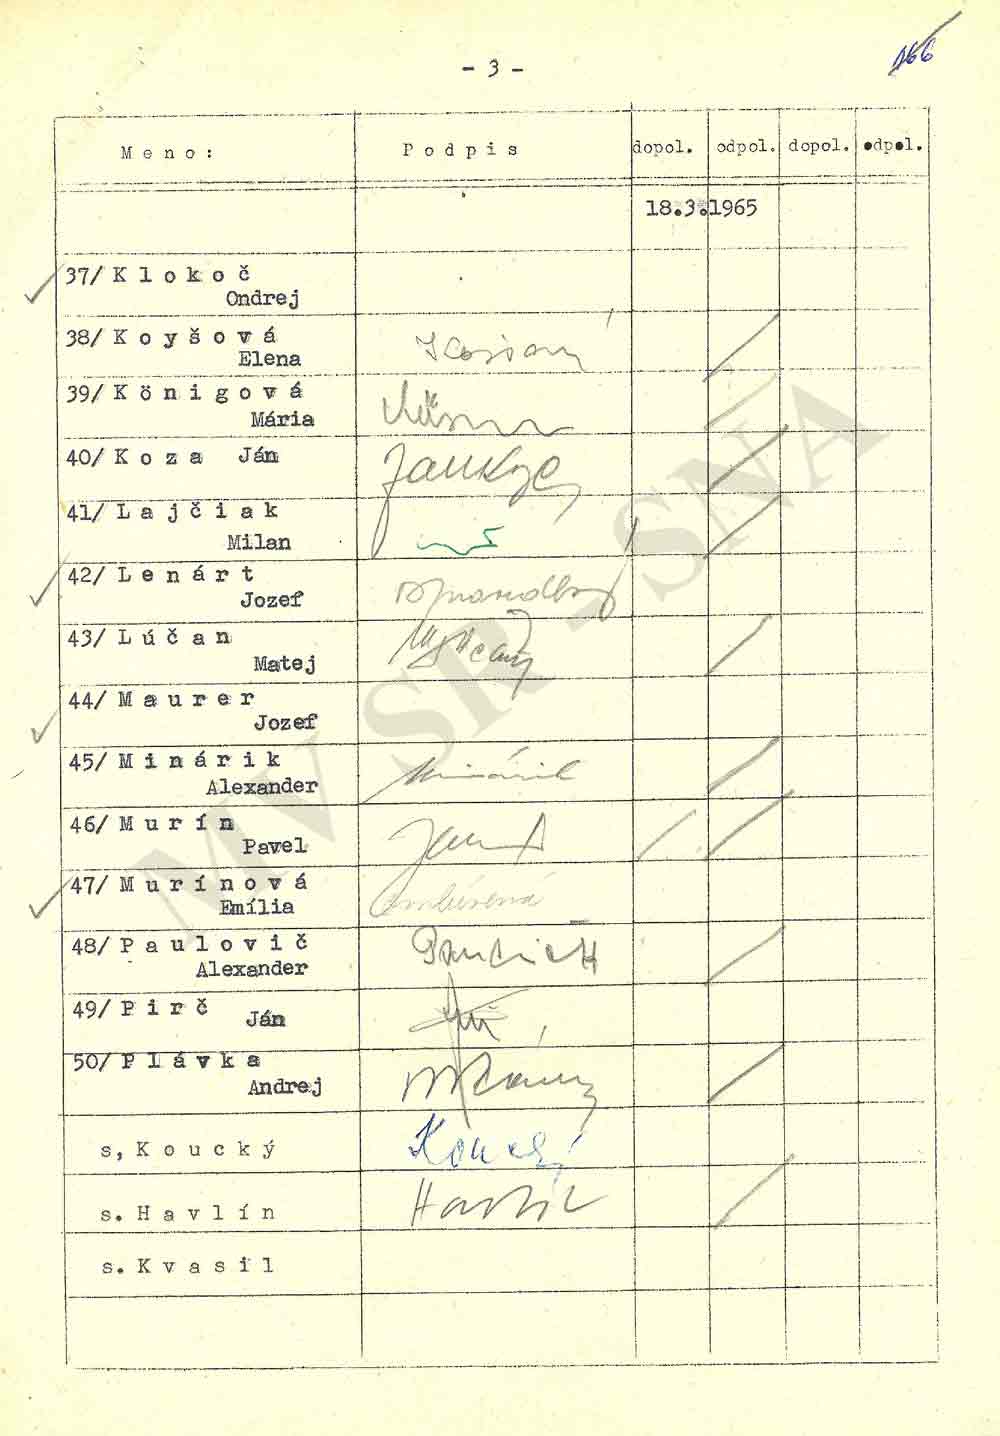 166
- 3 -
Meno: Podpis dopol. odpol. dopol. odpol.
18.3.1965
37/ Klokoč
Ondrej
38/ Koyšová
Elena
39/ Königová
Mária
40/ Koza Ján
41/ Lajčiak
Milan
42/ Lenárt
Jozef
43/ Lúčan
Matej
44/ Maurer
Jozef
45/ Minárik
Alexander
Minárik
46/ Murín
Pavel
47/ Murínová
Emília
48/ Paulovič
Alexander
49/ Pirč Ján
50/ Plávka
Andrej
s, Koucký Koucký
s. Havlín Havlín
s. Kvasil
MV SR - SNA